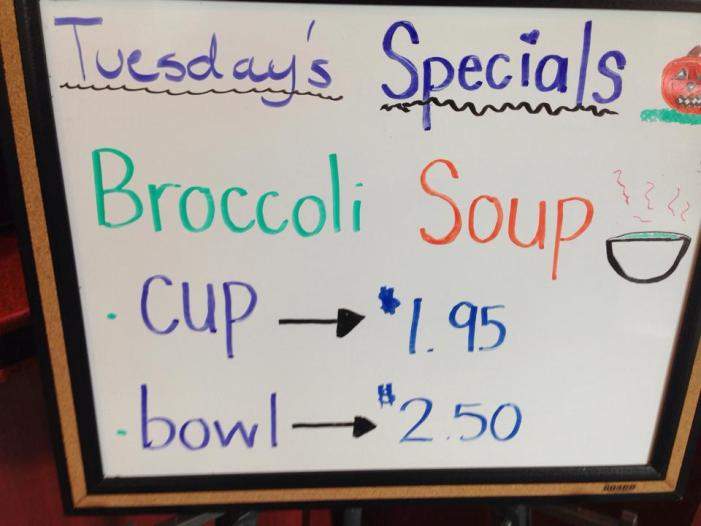 Tuesday's Specials
Broccoli Soup
· cup → $1.95
· bowl → $2.50